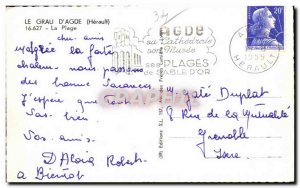 LE GRAU D'AGDE (Hérault)
16.627 - La Plage
chers amis
malgré la forte
chaleur nous passons
de bonne vacances
J'espère que
tous.
Vos amis.
D'Alora Robert
a Bientot
AGDE
sa Cathédrale
son Musée
ses PLAGES
de SABLE D'OR
20F
1959
HERAULT
Mr Gaté Duplat
8 Rue de la Mutualité
Grenoble
Isère